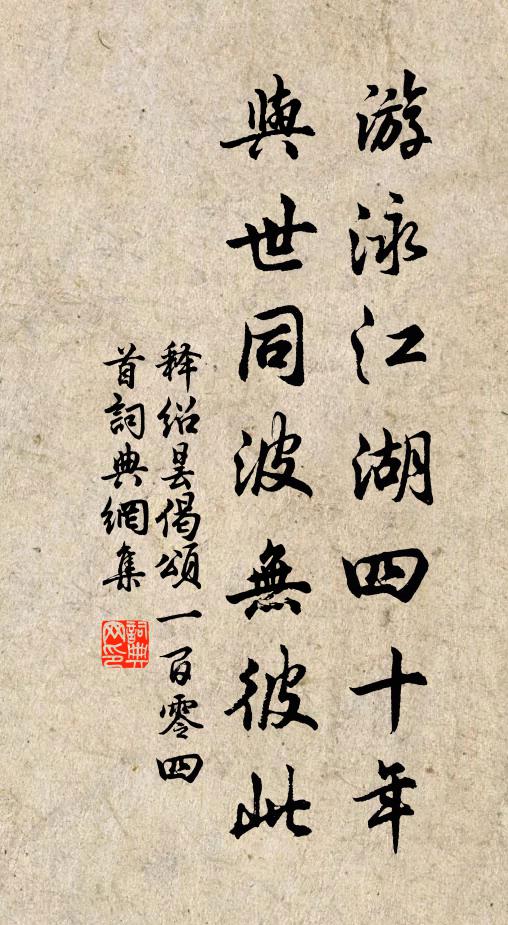 游泳江湖四十年
與世同波無彼此
釋紹曇偈頌一百零四
首詞典網集
詞典
网印